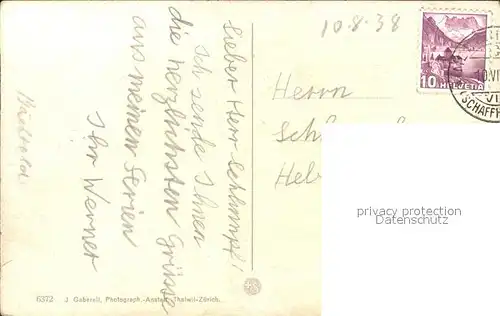 10.8.38
Lieber Herr Schlumpf!
Ich sende Ihnen
die herzlichsten Grüsse
aus meinen Ferien
Ihr Werner
Herrn
Sch
Hel
10 HELVETIA
10.VI
VI
SCHAFFH
privacy protection
watermark
6372 J. Gaberell, Photograph.-Anstalt, Thalwil-Zürich.